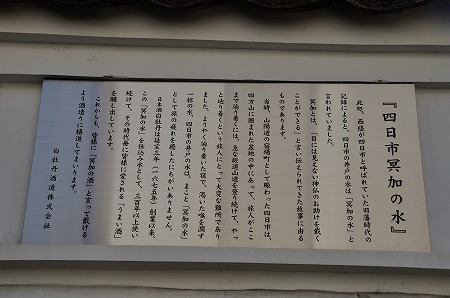 『四日市冥加の水』
此処、西條が四日市と呼ばれていた旧藩時代の
記録によると、四日市の井戸の水は「冥加の水」と
言われていました。
冥加とは、「目には見えない神仏のお助けを戴く
ことができる」と言い伝えられてきた故事に由る
ものであります。
当時、山陽道の宿場町として賑わった四日市は、
四方山に囲まれた盆地の中にあって、旅人がここ
まで辿り着くには、急な坂道山道を登り続けて、やっ
と辿り着くという旅人にとって大変な難所であり
ました。ようやく辿り着いた宿で、渇いた喉を潤す
一杯の水、四日市の井戸の水は、まこと「冥加の水」
として旅の疲れを癒したにちがいありません。
日本酒白牡丹は延宝三年(一六七五年)創業以来、
この「冥加の水」を仕込み水として、三百年以上使い
続けて、その時代毎に皆様に愛される「うまい酒」
を醸し出しています。
これからも、皆様に「冥加の酒」と言って戴ける
よう酒造りに精進してまいります。
白牡丹酒造株式会社